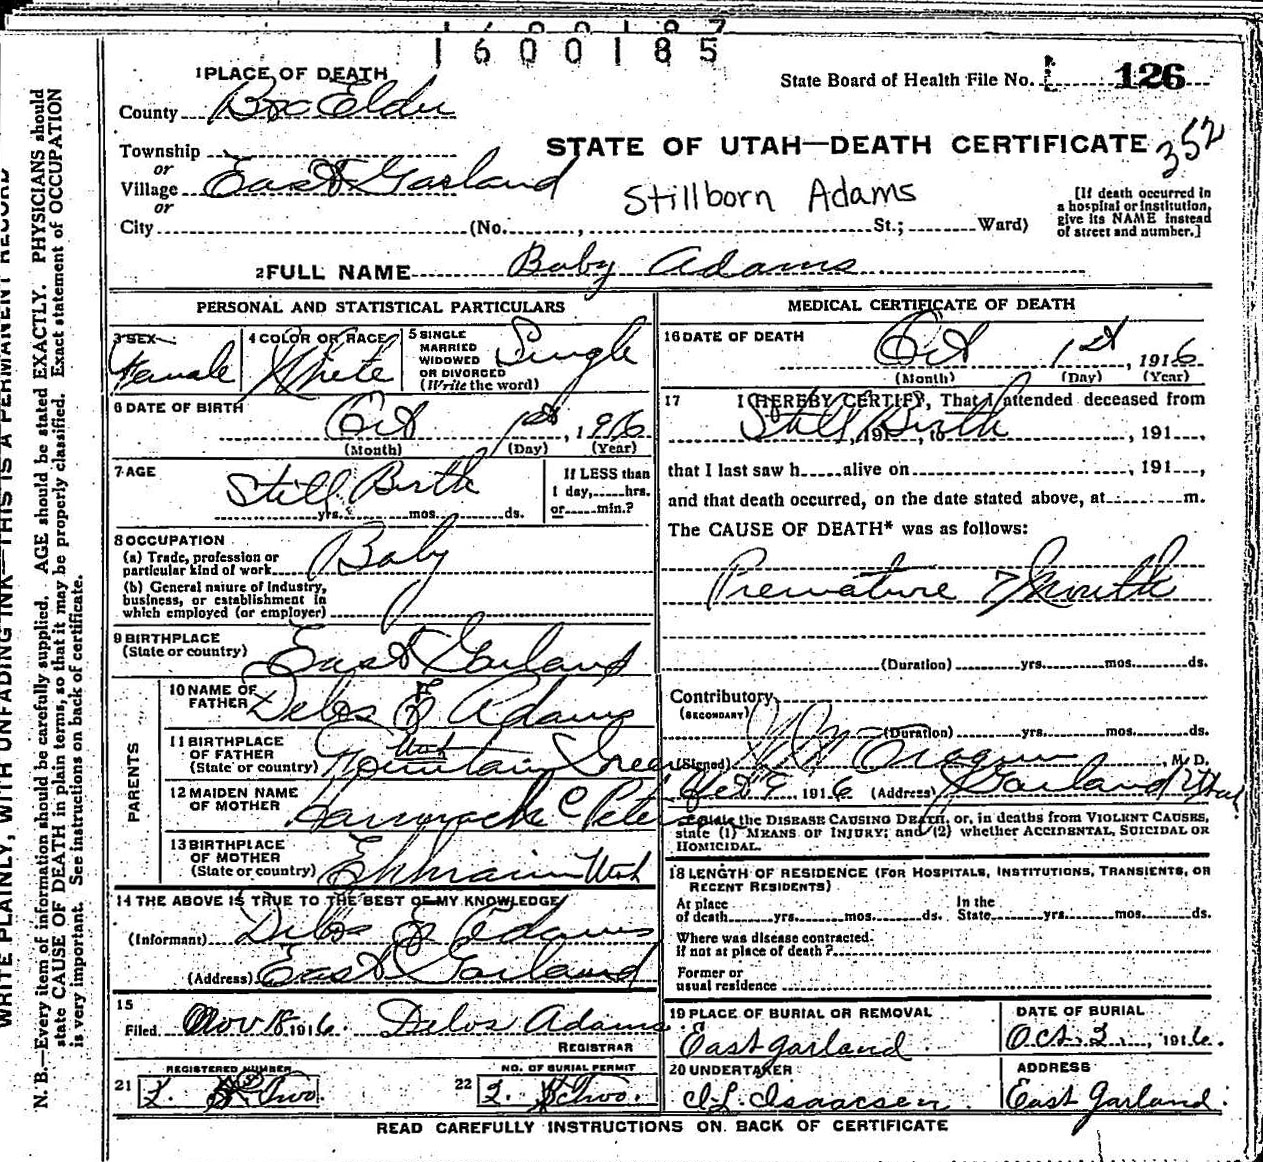 1600185
1 PLACE OF DEATH
State Board of Health File No. 126
County Box Elder
352
Township
STATE OF UTAH—DEATH CERTIFICATE
or
Village East Garland
Stillborn Adams
[If death occurred in a hospital or institution, give its NAME instead of street and number.]
or
City (No. , St.; Ward)
2 FULL NAME Baby Adams
PERSONAL AND STATISTICAL PARTICULARS
3 SEX Female
4 COLOR OR RACE White
5 SINGLE MARRIED WIDOWED OR DIVORCED (Write the word) Single
6 DATE OF BIRTH Oct 1st, 1916
(Month) (Day) (Year)
7 AGE Still Birth
yrs. mos. ds.
If LESS than 1 day, hrs. or min.?
8 OCCUPATION
(a) Trade, profession or particular kind of work Baby
(b) General nature of industry, business, or establishment in which employed (or employer)
9 BIRTHPLACE (State or country) East Garland
PARENTS
10 NAME OF FATHER Delos F Adams
11 BIRTHPLACE OF FATHER (State or country) Mountain Green Utah
12 MAIDEN NAME OF MOTHER C
13 BIRTHPLACE OF MOTHER (State or country) Ephraim Utah
14 THE ABOVE IS TRUE TO THE BEST OF MY KNOWLEDGE
(Informant) Delos F Adams
(Address) East Garland
15
Filed Nov 18 1916. Delos Adams
REGISTRAR
21 REGISTERED NUMBER 2. Two.
22 NO. OF BURIAL PERMIT 2. Two.
MEDICAL CERTIFICATE OF DEATH
16 DATE OF DEATH Oct 1st, 1916
(Month) (Day) (Year)
17 I HEREBY CERTIFY, That I attended deceased from
Still Birth, 191 , to , 191 ,
that I last saw h alive on , 191 ,
and that death occurred, on the date stated above, at m.
The CAUSE OF DEATH* was as follows:
Premature 7 Month
(Duration) yrs. mos. ds.
Contributory (SECONDARY)
(Duration) yrs. mos. ds.
(Signed) M.D.
1916 (Address) Garland Utah
*State the DISEASE CAUSING DEATH, or, in deaths from VIOLENT CAUSES, state (1) MEANS OF INJURY; and (2) whether ACCIDENTAL, SUICIDAL OR HOMICIDAL.
18 LENGTH OF RESIDENCE (FOR HOSPITALS, INSTITUTIONS, TRANSIENTS, OR RECENT RESIDENTS)
At place of death yrs. mos. ds. In the State yrs. mos. ds.
Where was disease contracted. if not at place of death?
Former or usual residence
19 PLACE OF BURIAL OR REMOVAL East garland
DATE OF BURIAL Oct. 2., 1916.
20 UNDERTAKER Isaacsen.
ADDRESS East Garland.
READ CAREFULLY INSTRUCTIONS ON BACK OF CERTIFICATE
WRITE PLAINLY, WITH UNFADING INK—THIS IS A PERMANENT RECORD
N. B.—Every item of information should be carefully supplied. AGE should be stated EXACTLY. PHYSICIANS should
state CAUSE OF DEATH in plain terms, so that it may be properly classified. Exact statement of OCCUPATION
is very important. See instructions on back of certificate.